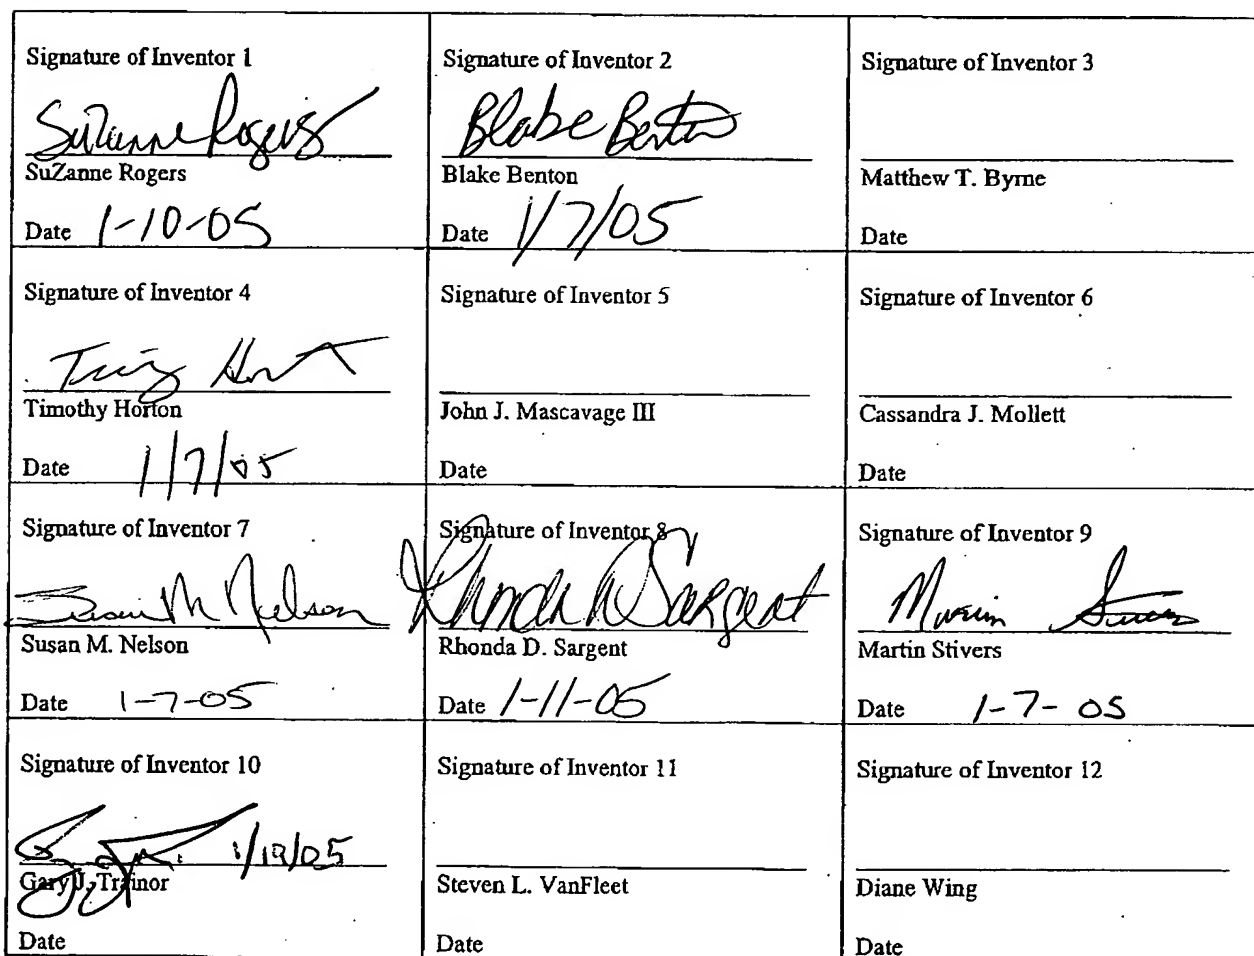 Signature of Inventor 1
SuZanne Rogers
SuZanne Rogers
Date 1-10-05
Signature of Inventor 2
Blake Benton
Blake Benton
Date 1/7/05
Signature of Inventor 3
Matthew T. Byrne
Date
Signature of Inventor 4
Horton
Timothy Horton
Date 1/7/05
Signature of Inventor 5
John J. Mascavage III
Date
Signature of Inventor 6
Cassandra J. Mollett
Date
Signature of Inventor 7
Susan M Nelson
Susan M. Nelson
Date 1-7-05
Signature of Inventor 8
Rhonda D Sargent
Rhonda D. Sargent
Date 1-11-05
Signature of Inventor 9
Martin Stivers
Martin Stivers
Date 1-7-05
Signature of Inventor 10
Gary J. Trainor
Date
Signature of Inventor 11
Steven L. VanFleet
Date
Signature of Inventor 12
Diane Wing
Date